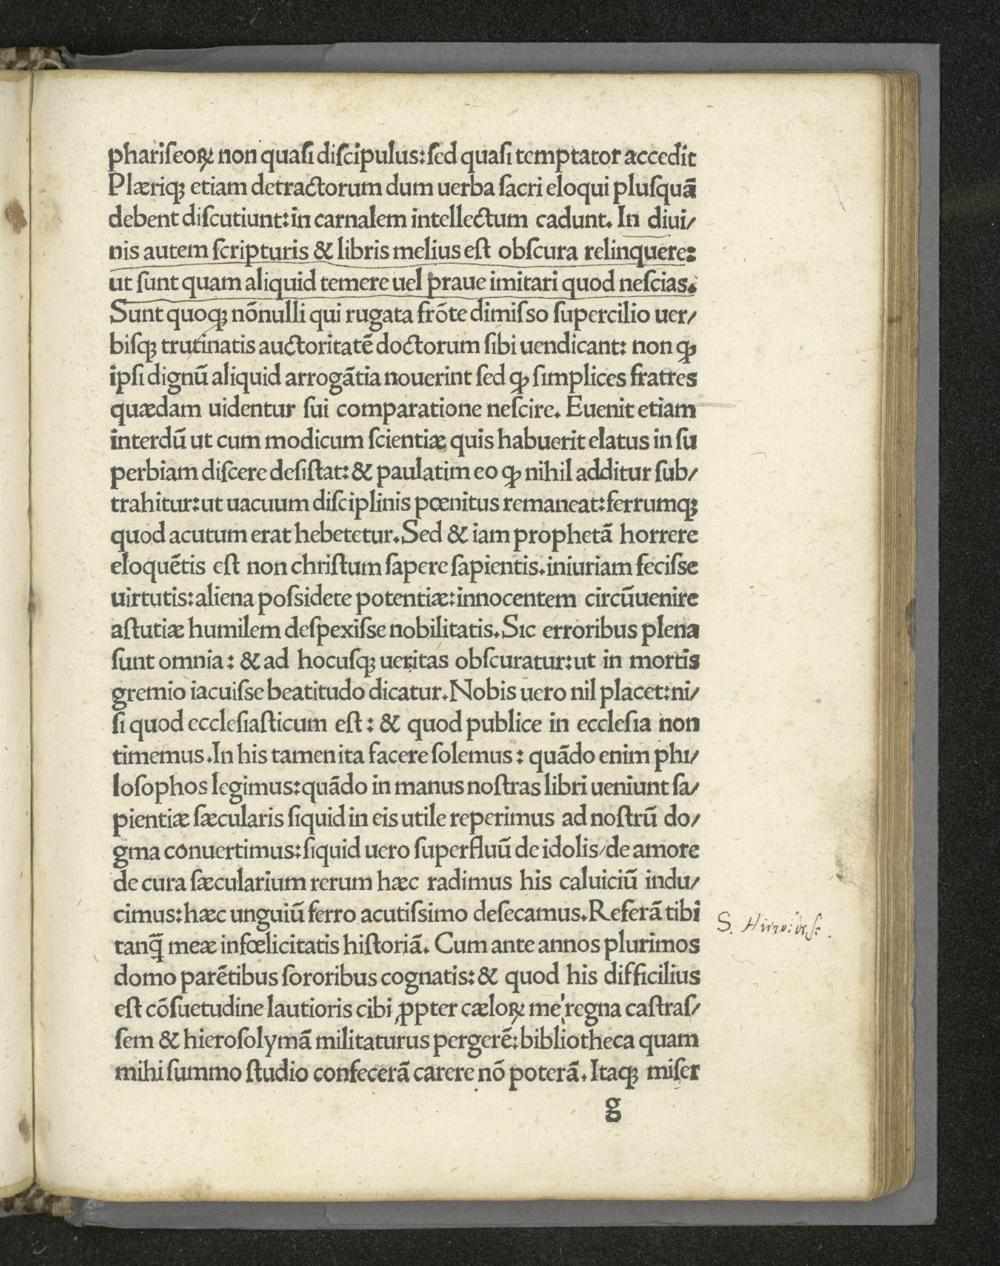 phariſeoꝝ non quaſi diſcipulus:ſed quaſi temptator accedit
Plæriqꝫ etiam detractorum dum uerba ſacri eloqui pluſquā
debent diſcutiunt:in carnalem intellectum cadunt. In diui/
nis autem ſcripturis & libris melius eſt obſcura relinquere:
ut ſunt quam aliquid temere uel praue imitari quod neſcias.
Sunt quoqꝫ nōnulli qui rugata frōte dimiſso ſupercilio uer/
biſqꝫ trutinatis auctoritatē doctorum ſibi uendicant: non ꝙ
ipſi dignū aliquid arrogātia nouerint ſed ꝙ ſimplices fratres
quædam uidentur ſui comparatione neſcire. Euenit etiam
interdū ut cum modicum ſcientiæ quis habuerit elatus in ſu
perbiam diſcere deſiſtat:& paulatim eo ꝙ nihil additur ſub/
trahitur:ut uacuum diſciplinis pœnitus remaneat:ferrumqꝫ
quod acutum erat hebetetur.Sed & iam prophetā horrere
eloquētis eſt non chriſtum ſapere ſapientis.iniuriam feciſse
uirtutis:aliena poſsidete potentiæ:innocentem circūuenire
aſtutiæ humilem deſpexiſse nobilitatis.Sic erroribus plena
ſunt omnia: & ad hocuſqꝫ ueritas obſcuratur:ut in mortis
gremio iacuiſse beatitudo dicatur.Nobis uero nil placet:ni/
ſi quod eccleſiaſticum eſt: & quod publice in eccleſia non
timemus.In his tamen ita facere ſolemus: quādo enim phi/
loſophos legimus:quādo in manus noſtras libri ueniunt ſa/
pientiæ ſæcularis ſiquid in eis utile reperimus ad noſtrū do/
gma conuertimus:ſiquid uero ſuperfluū de idolis/de amore
de cura ſæcularium rerum hæc radimus his caluiciū indu/
cimus:hæc unguiū ferro acutiſsimo deſecamus.Referā tibi
tanq̄ meæ infœlicitatis hiſtoriā. Cum ante annos plurimos
domo parētibus ſororibus cognatis:& quod his difficilius
eſt cōſuetudine lautioris cibi ꝓpter cæloꝝ me'regna caſtraſ/
ſem & hieroſolymā militaturus pergerē:bibliotheca quam
mihi ſummo ſtudio confecerā carere nō poterā. Itaqꝫ miſer
g
S.